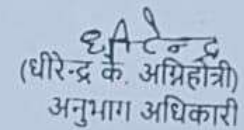 धीरेन्द्र
(धीरेन्द्र के. अग्निहोत्री)
अनुभाग अधिकारी